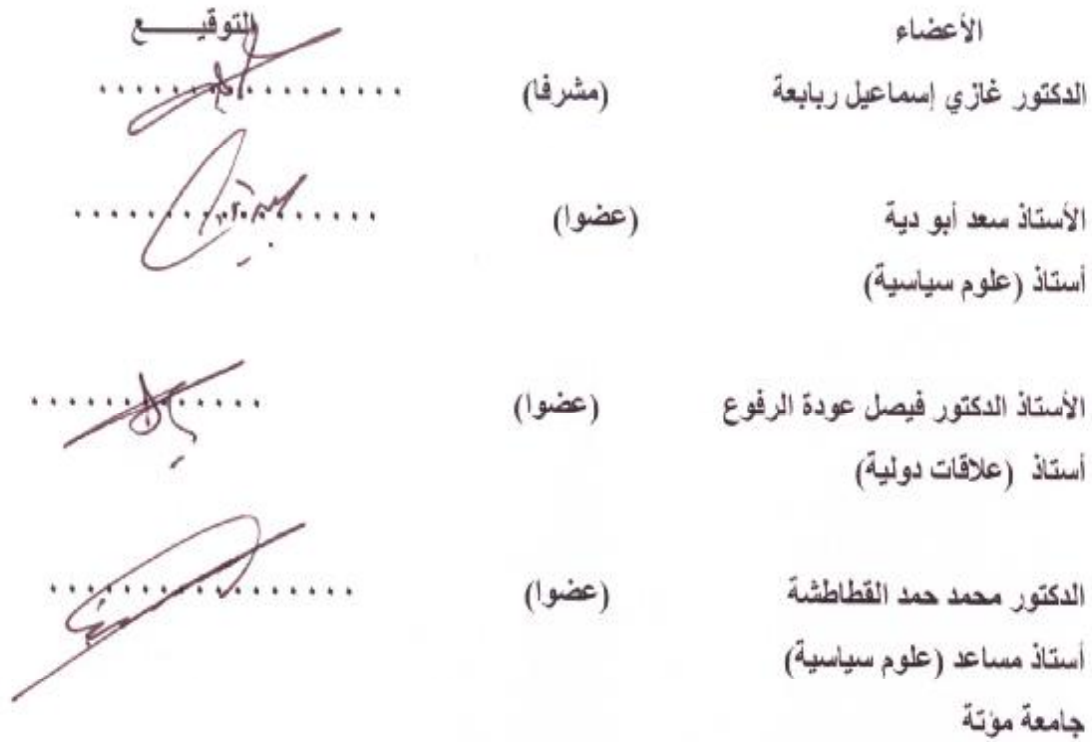 الأعضاء التوقيـــــع
الدكتور غازي إسماعيل ربابعة (مشرفا) ..................
الأستاذ سعد أبو دية (عضوا) ..................
أستاذ (علوم سياسية)
الأستاذ الدكتور فيصل عودة الرفوع (عضوا) ..............
أستاذ (علاقات دولية)
الدكتور محمد حمد القطاطشة (عضوا) ..................
أستاذ مساعد (علوم سياسية)
جامعة مؤتة